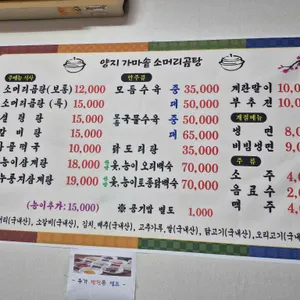 양지 가마솥 소머리곰탕
주메뉴 식사
소머리곰탕 (보통) 12,000
소머리곰탕 (특) 15,000
설렁탕 10,000
갈비탕 15,000
떡국 10,000
능이삼계탕 18,000
누룽지삼계탕 19,000
(능이추가: 15,000)
안주류
모듬수육 중 35,000
대 50,000
모듬국물수육 중 50,000
대 65,000
닭도리탕 50,000
옻,능이오리백숙 70,000
옻,능이토종닭백숙 70,000
※ 공기밥 별도 1,000
계란말이 10,0
부추전 10,0
계절메뉴
냉면 8,0
비빔냉면 9,0
주류
소주 4,0
음료수 2,0
맥주 4,0
머리(국내산), 소갈비(국내산), 김치, 배추(국내산), 고추가루,쌀(국내산), 닭고기(국내산), 오리고기(국내산)
- 추가 반찬은 셀프 -